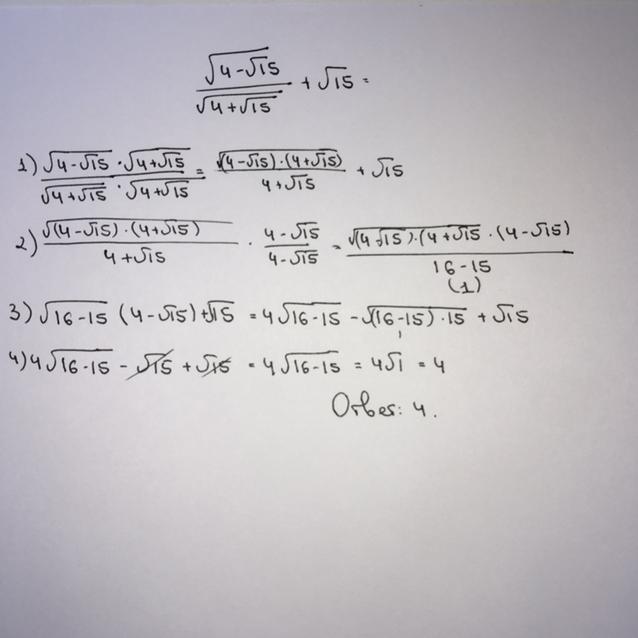 √(4-√15) / √(4+√15) + √15 =
1) √(4-√15) · √(4+√15) / √(4+√15) · √(4+√15) = √((4-√15)·(4+√15)) / 4+√15 + √15
2) √((4-√15)·(4+√15)) / 4+√15 · 4-√15 / 4-√15 = √((4-√15)·(4+√15)) · (4-√15) / 16-15
(1)
3) √(16-15) (4-√15)+√15 = 4√(16-15) - √((16-15)·15) + √15
4) 4√(16-15) - √15 + √15 = 4√(16-15) = 4√1 = 4
Ответ: 4.